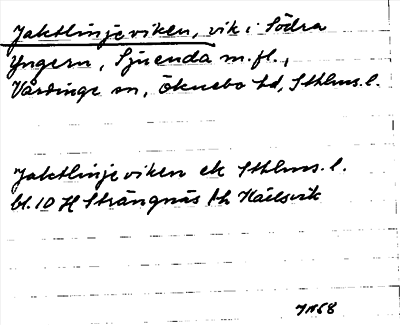 Jaktlinjeviken, vik i Södra
Yngern, Sjuenda m.fl.,
Vårdinge sn, Öknebo hd, Sthlms.l.
Jaktlinjeviken ek Sthlms.l.
bl. 10 H Strängnäs th
JN68